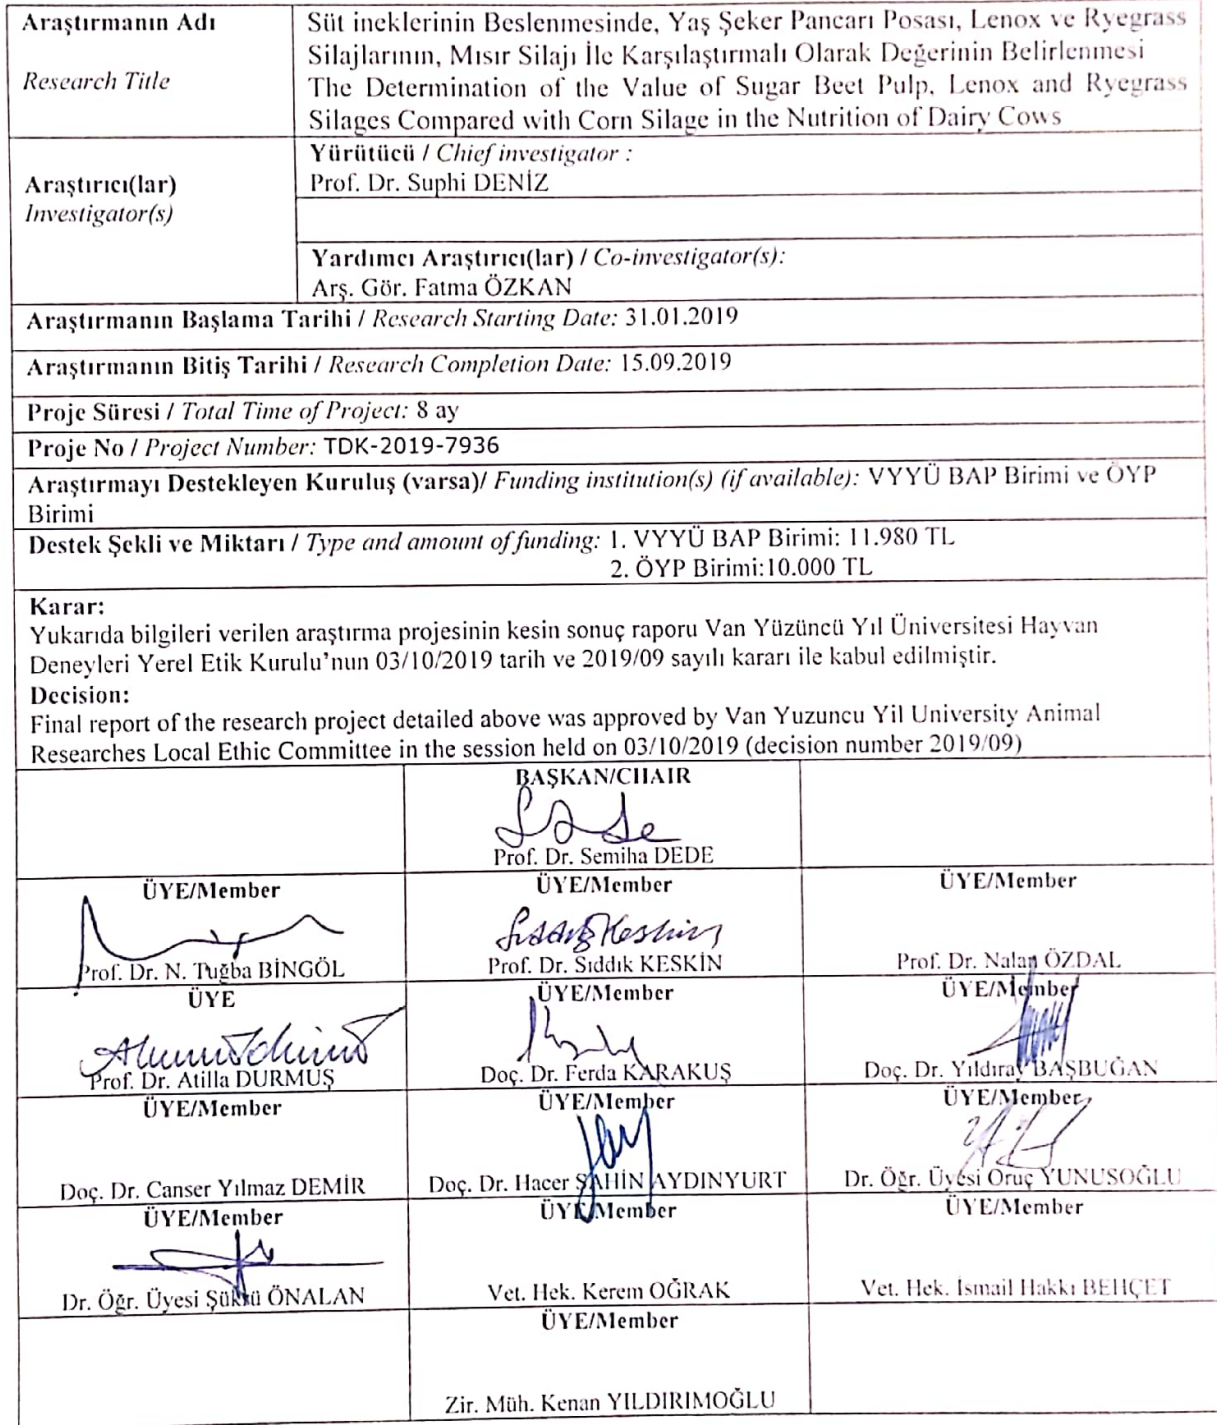 Araştırmanın Adı
Research Title
Süt ineklerinin Beslenmesinde, Yaş Şeker Pancarı Posası, Lenox ve Ryegrass
Silajlarının, Mısır Silajı İle Karşılaştırmalı Olarak Değerinin Belirlenmesi
The Determination of the Value of Sugar Beet Pulp, Lenox and Ryegrass
Silages Compared with Corn Silage in the Nutrition of Dairy Cows
Araştırıcı(lar)
Investigator(s)
Yürütücü / Chief investigator :
Prof. Dr. Suphi DENİZ
Yardımcı Araştırıcı(lar) / Co-investigator(s):
Arş. Gör. Fatma ÖZKAN
Araştırmanın Başlama Tarihi / Research Starting Date: 31.01.2019
Araştırmanın Bitiş Tarihi / Research Completion Date: 15.09.2019
Proje Süresi / Total Time of Project: 8 ay
Proje No / Project Number: TDK-2019-7936
Araştırmayı Destekleyen Kuruluş (varsa)/ Funding institution(s) (if available): VYYÜ BAP Birimi ve ÖYP
Birimi
Destek Şekli ve Miktarı / Type and amount of funding: 1. VYYÜ BAP Birimi: 11.980 TL
2. ÖYP Birimi:10.000 TL
Karar:
Yukarıda bilgileri verilen araştırma projesinin kesin sonuç raporu Van Yüzüncü Yıl Üniversitesi Hayvan
Deneyleri Yerel Etik Kurulu'nun 03/10/2019 tarih ve 2019/09 sayılı kararı ile kabul edilmiştir.
Decision:
Final report of the research project detailed above was approved by Van Yuzuncu Yil University Animal
Researches Local Ethic Committee in the session held on 03/10/2019 (decision number 2019/09)
BAŞKAN/CHAIR
Prof. Dr. Semiha DEDE
ÜYE/Member
Prof. Dr. N. Tuğba BİNGÖL
ÜYE/Member
Prof. Dr. Sıddık KESKİN
ÜYE/Member
Prof. Dr. Nalan ÖZDAL
ÜYE
Prof. Dr. Atilla DURMUŞ
ÜYE/Member
Doç. Dr. Ferda KARAKUŞ
ÜYE/Member
Doç. Dr. Yıldıray BAŞBUĞAN
ÜYE/Member
Doç. Dr. Canser Yılmaz DEMİR
ÜYE/Member
Doç. Dr. Hacer ŞAHİN AYDINYURT
ÜYE/Member
Dr. Öğr. Üyesi Oruç YUNUSOĞLU
ÜYE/Member
Dr. Öğr. Üyesi Şükrü ÖNALAN
ÜYE/Member
Vet. Hek. Kerem OĞRAK
ÜYE/Member
Vet. Hek. İsmail Hakkı BEHÇET
ÜYE/Member
Zir. Müh. Kenan YILDIRIMOĞLU